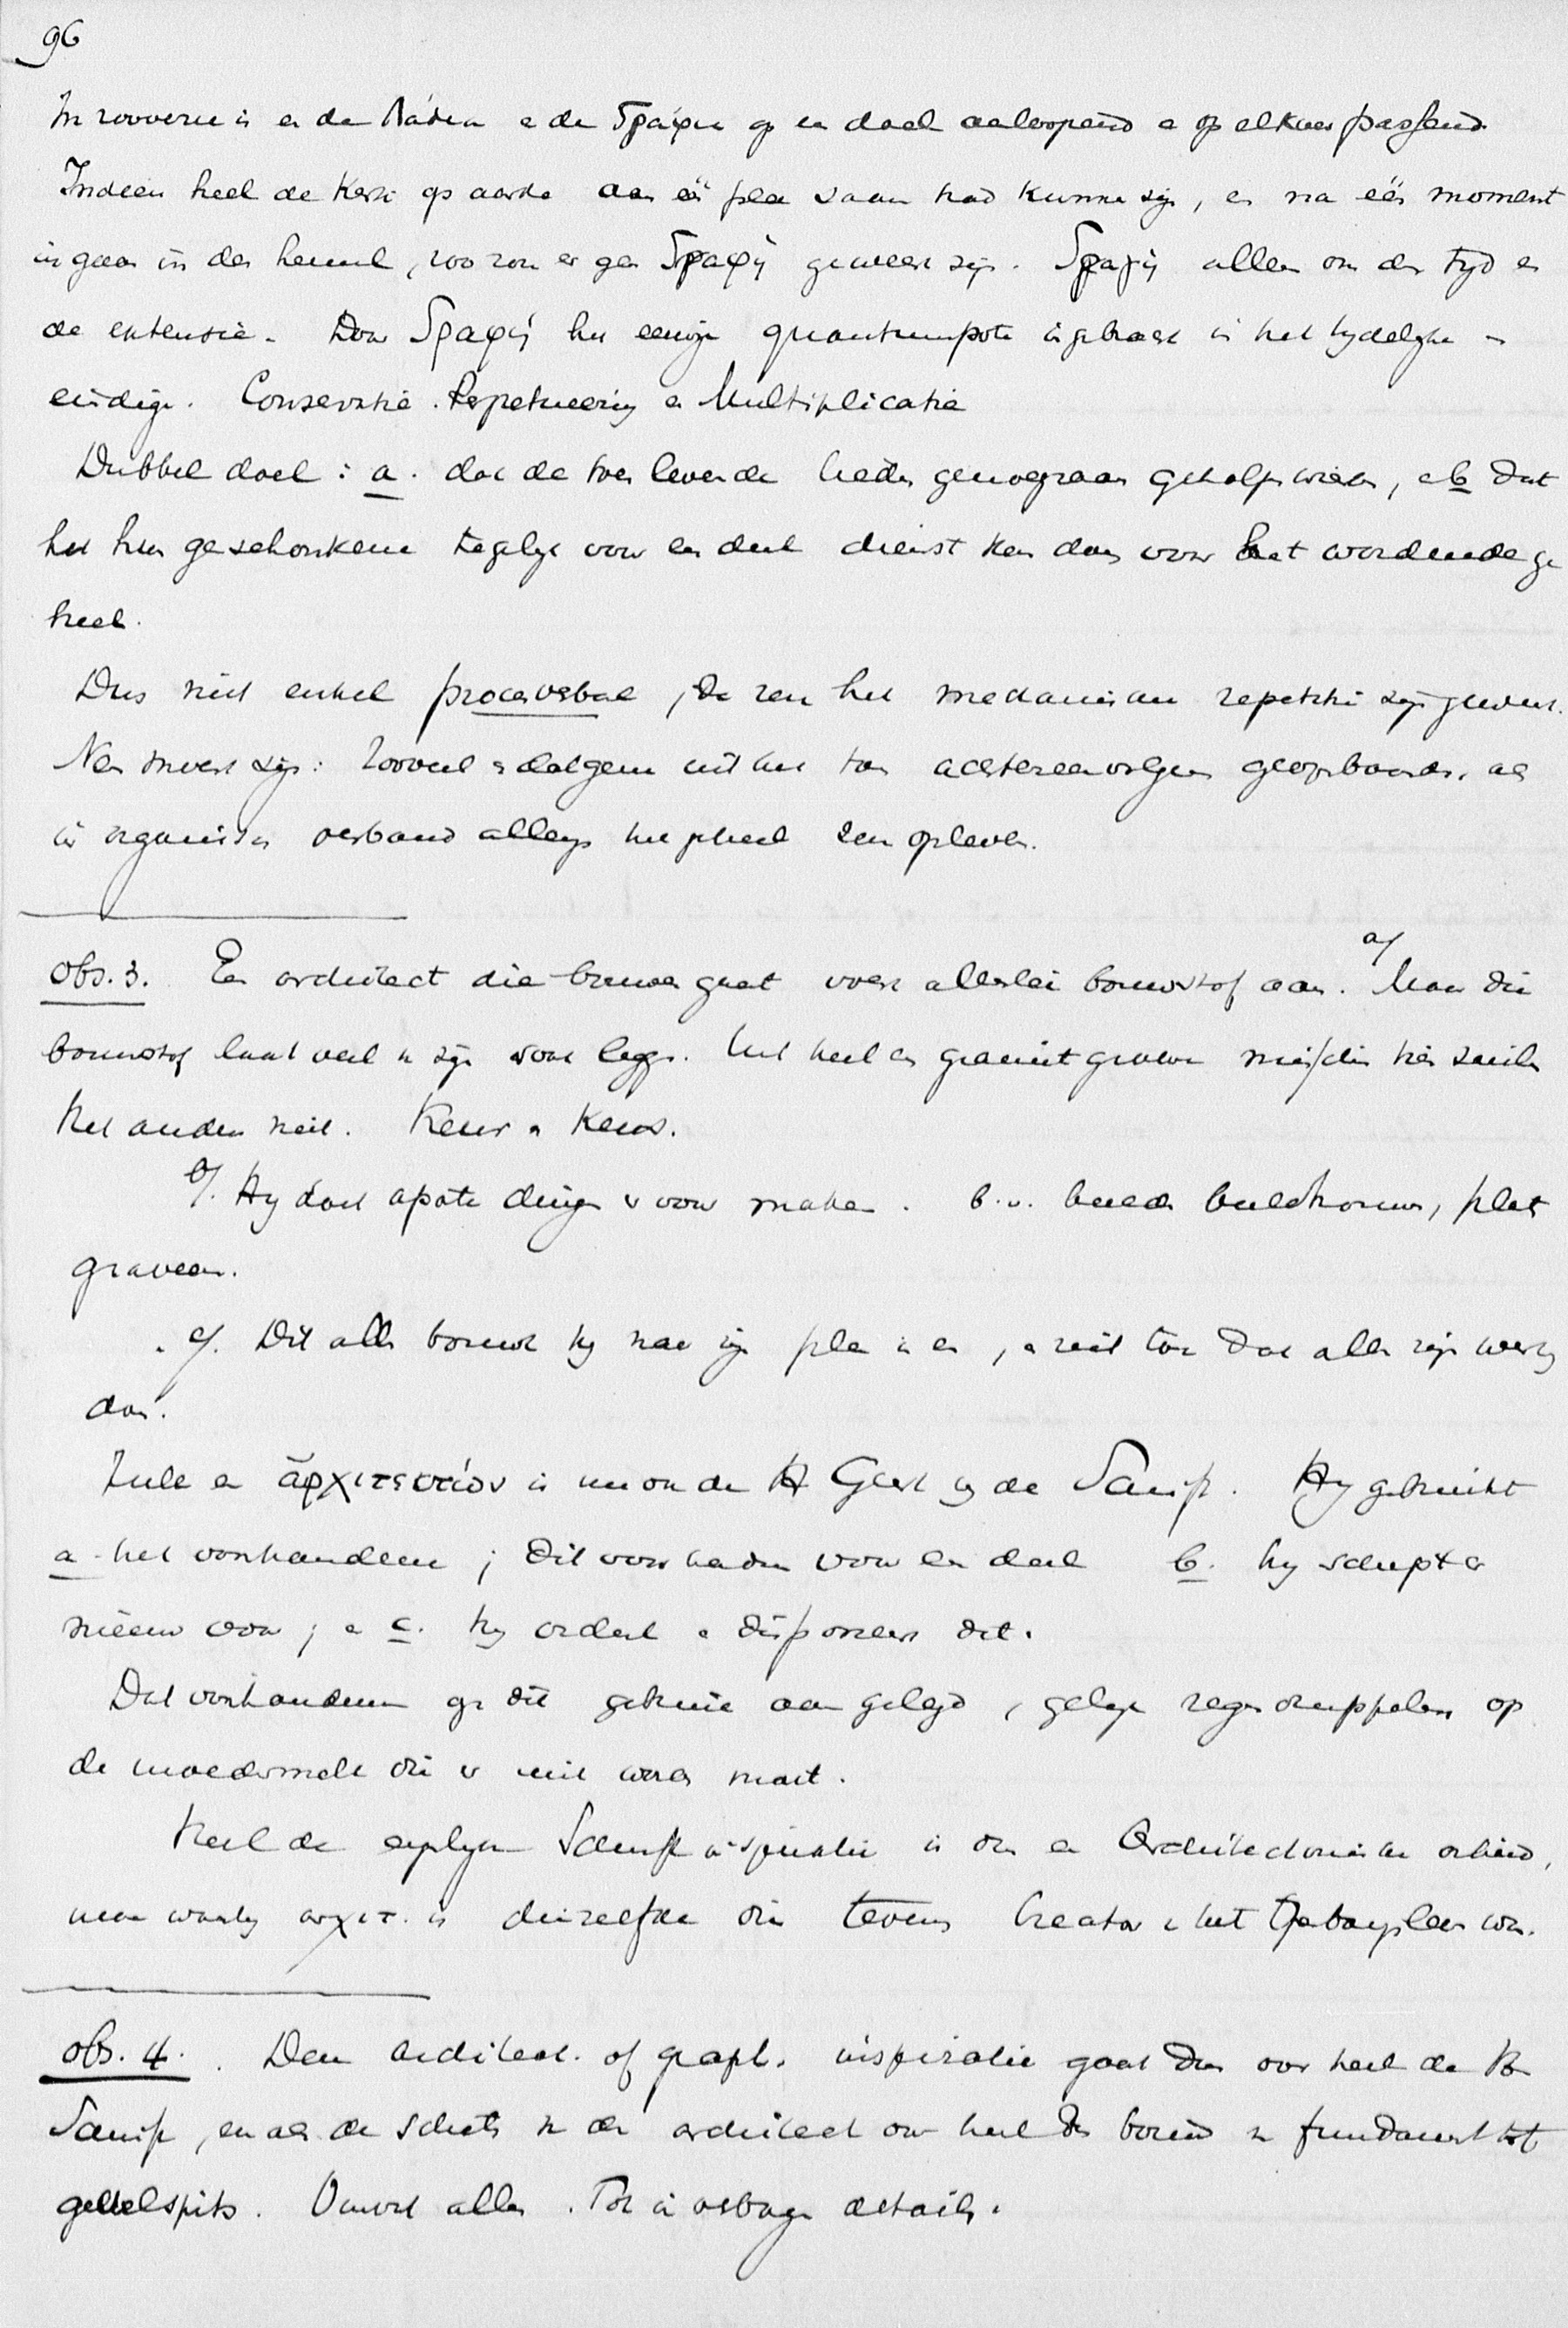 96
In zooverre is en de λαλειν en de γραφειν op een doel aanloopend en op elkaer passend.
Indien heel de Kerk op aarde aan één plek saam had kunnen zijn, en na één moment
ingaan in den hemel, zoo zou er geen γραφή geweest zijn. γραφή alleen om den tijd en
de extensie. Door γραφή het eeuwige ingebracht in het tijdelijke en
eindige. Conservatie. Perpetueering en Multiplicatie
Dubbel doel: a. dat de toen levende lieden genoegzaam geholpen wierden, en b dat
het hun geschonkene tegelijk voor een deel dienst kon doen voor het wordende ge
heel.
Dus niet enkel procesverbael, de zou het mechanische repetitie zijn geweest.
Neen moest zijn: zooveel en datgene uit het toen achtereenvolgens geopenbaarde, als
in organisch verband allengs het geheel zou opleveren.
Obs. 3. Een architect die bouwen gaat voert allerlei bouwstof aan. a/ Maar die
bouwstof laat veel in zijn voor liggen. Uit heel een graniet groeve misschien tien zuilen
het andere niet. Keur en Keus.
b/. Hij doet aparte dingen er voor maken. b.v. beelden beeldhouwen, plat
graveeren.
c/. Dit alles bouwt hij naar zijn plan in een, en ziet toe dat alles zijn werking
doe.
Zulk een ἀρχιτεκτων is nu ook de H Geest bij de Schrift. Hij gebruikt
a. het voorhandene; dit voorhanden voor een deel b. hij schept er
nieuw voor; en c. hij ordent en disponeert dit.
Dat voorhandene op dit gebruik aangelegd, gelijk regendruppelen op
de moedermelk die er uit worden moet.
Heel de eigenlijke Schrift inspiratie is dus een Architectonische arbeid,
maar waarbij αρχιτ. is dezelfde die tevens Creator en het was.
Obs. 4. Deze architect. of graph. inspiratie gaat dus over heel de H.
Schrift, even als de schets van den architect over heel den bouw van fundament tot
gevelspits. Omvat alles. Tot in details.